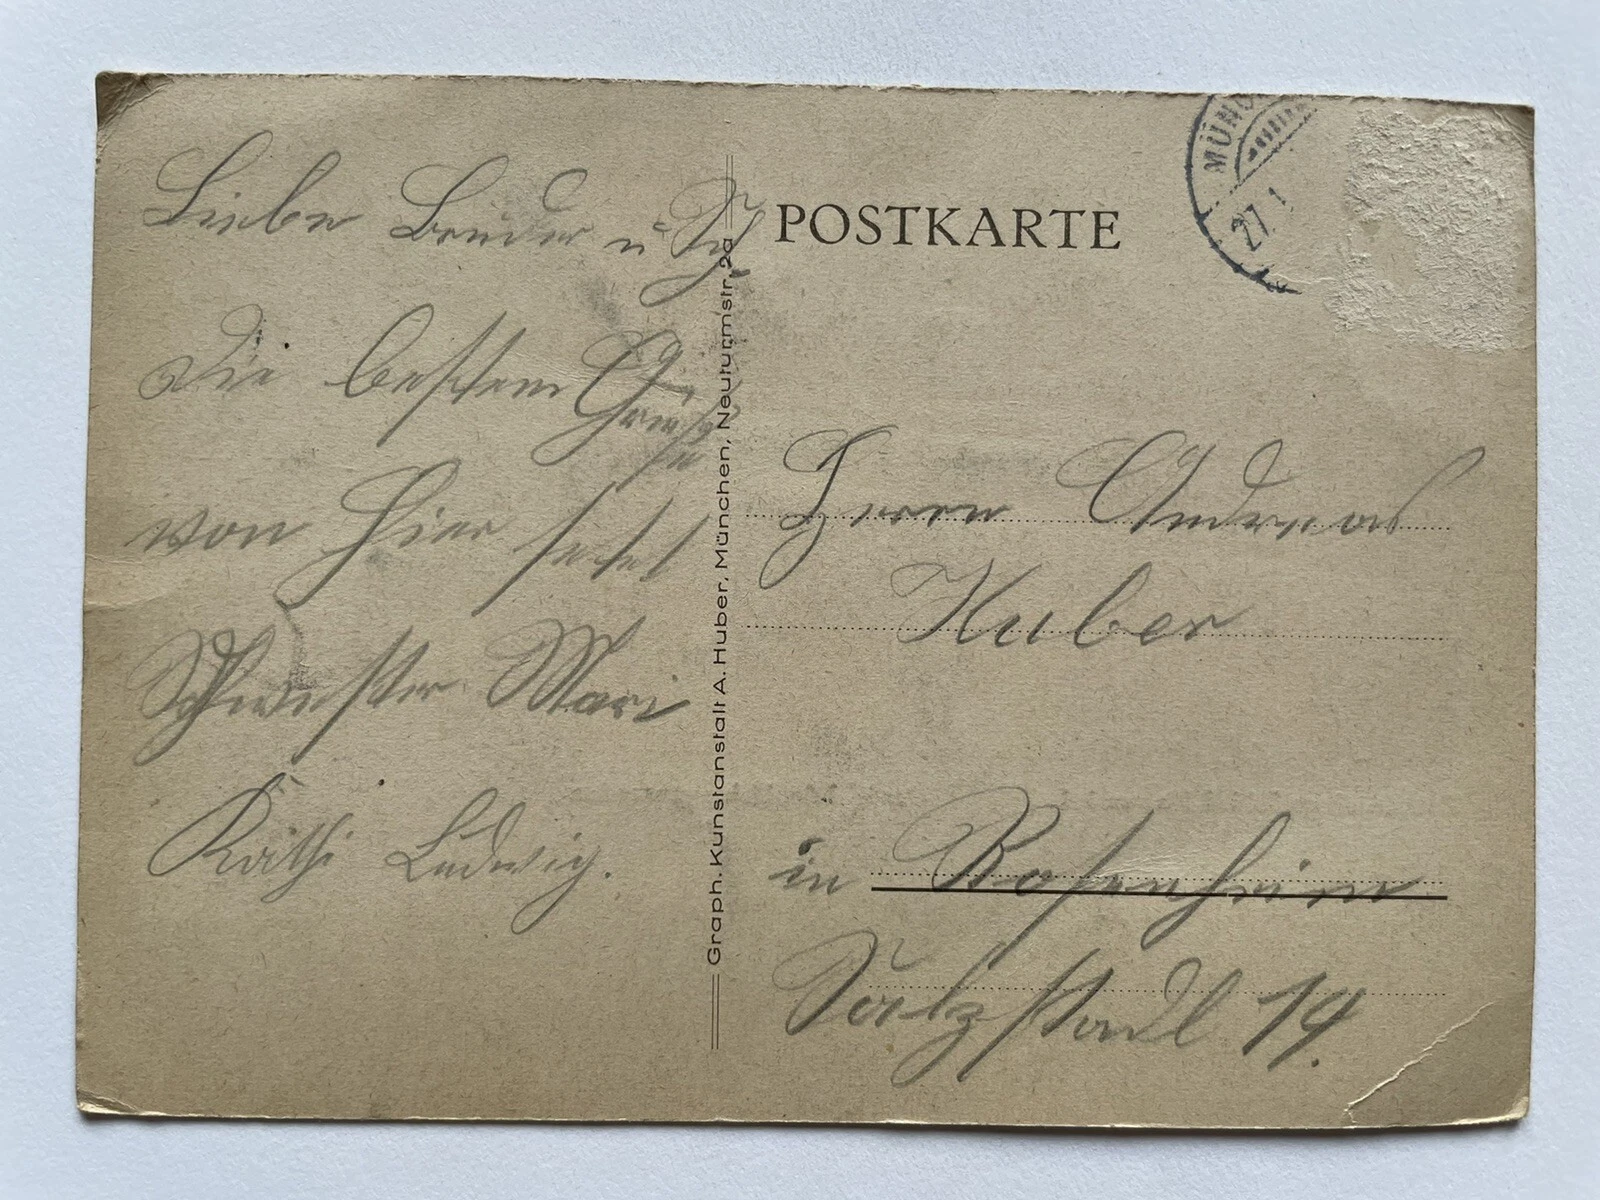 Liebe Bruder u
Die besten Grüße
von hier
Schwester Mari
Käthi Ludwig.
Graph. Kunstanstalt A. Huber, München, Neuturmstr. 2a
POSTKARTE
MÜNC
27.1
Herrn Andreas
Huber
in Rosenheim
Salzstadl 19.